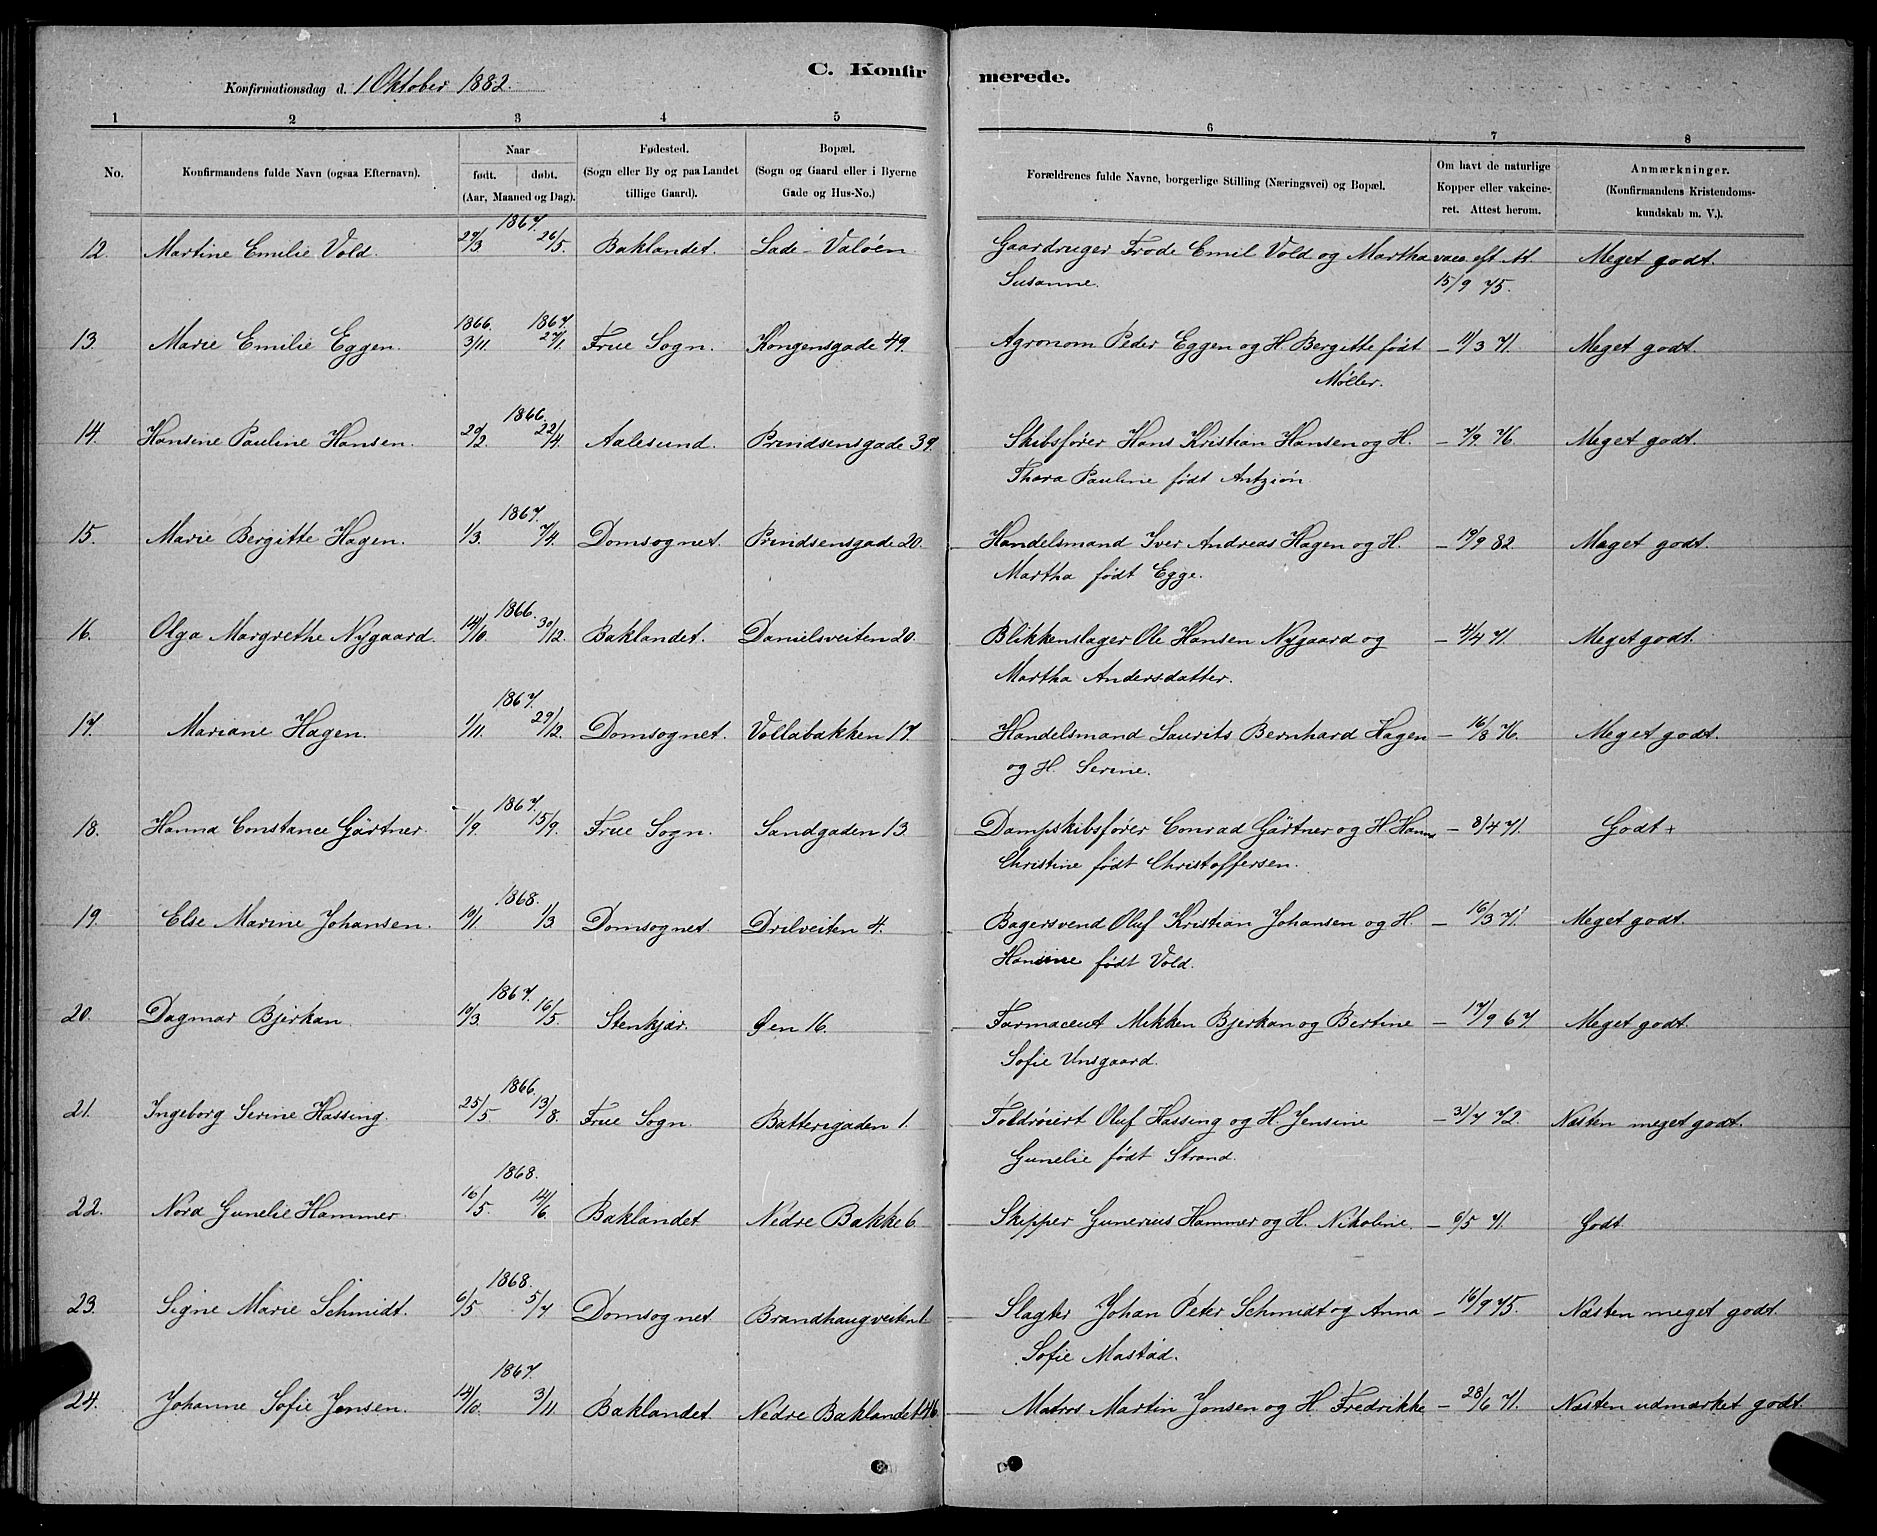 C. Konfirmerede.
Konfirmationsdag d. 1 Oktober 1882.
1 2 3 4 5 6 7 8
No. Konfirmandens fulde Navn (ogsaa Efternavn). Naar født. døbt. (Aar, Maaned og Dag). Fødested. (Sogn eller By og paa Landet tillige Gaard). Bopæl. (Sogn og Gaard eller i Byerne Gade og Hus-No.) Forældrenes fulde Navne, borgerlige Stilling (Næringsvei) og Bopæl. Om havt de naturlige Kopper eller vakcineret. Attest herom. Anmærkninger. (Konfirmandens Kristendomskundskab m. V.).
1867.
12. Martine Emilie Vold. 29/3 26/5. Baklandet. Lade - Valøen Gaardruger Frode Emil Vold og Martha vacc. eft At. Meget godt.
Susanne. 15/9 75.
1866. 1867.
13. Marie Emilie Eggen. 3/11. 27/1. Frue Sogn. Kongensgade 49. Agronom Peder Eggen og H. Bergitte født — 11/3 71. Meget godt.
Møller.
1866.
14. Hansine Pauline Hansen. 20/2. 22/4. Aalesund. Prindsensgade 39. Skibsfører Hans Kristian Hansen og H. — 7/9 76. Meget godt.
Thora Pauline født Antzión
1867.
15. Marie Bergitte Hagen. 1/3. 7/4. Domsognet. Prindsensgade 20. Handelsmand Iver Andreas Hagen og H. — 19/9 82. Meget godt.
Martha født Egge.
1866.
16. Olga Margrethe Nygaard. 14/10. 30/12. Baklandet. Danielsveiten 20. Blikkenslager Ole Hansen Nygaard og — 4/4 71. Meget godt.
Martha Andersdatter.
1867.
17. Mariane Hagen. 1/11. 29/12. Domsognet. Vollabakken 17. Handelsmand Laurits Bernhard Hagen — 16/8 76. Meget godt.
og H. Serine.
1867.
18. Hanna Constance Gärtner. 1/9. 15/9. Frue Sogn. Sandgaden 13. Dampskibsfører Conrad Gärtner og H. Hanna — 8/4 71. Godt +
Christine født Christoffersen.
1868.
19. Else Marine Johansen. 10/1. 1/3. Domsognet. Drilveiten 4. Bagersvend Oluf Kristian Johansen og H. — 16/3 71. Meget godt.
Hansine født Vold.
1867.
20. Dagmar Bjerkan. 10/3. 16/5. Stenkjær. Øen 16. Farmaceut Mikken Bjerkan og Bertine — 17/9 67 Meget godt.
Sofie Unsgaard.
1866.
21. Ingeborg Serine Hassing. 25/5. 13/8. Frue Sogn. Batterigaden 1. Toldrøiert Oluf Hassing og H. Jensine — 31/7 72. Næsten meget godt.
Gunelie født Strand.
1868.
22. Nora Gunelie Hammer. 16/5. 14/6. Baklandet Nedre Bakke 6. Skipper Gunerius Hammer og H. Nikoline. — 6/5 71. Godt
1868.
23. Signe Marie Schmidt. 6/5 5/7 Domsognet Brandhaugveiten 1 Slagter Johan Peter Schmidt og Anna — 16/9 75. Næsten meget godt.
Sofie Mastad.
1867.
24. Johanne Sofie Jensen. 14/10. 3/11. Baklandet Nedre Baklandet 46. Matros Martin Jensen og H. Fredrikke — 28/6 71. Næsten udmærket godt.